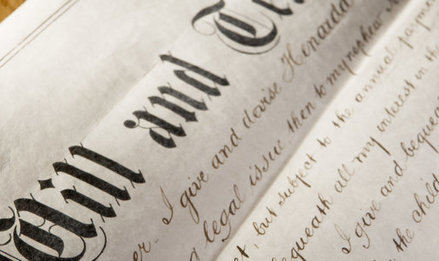 Will and Te
er. I give and devise
g legal issue then to my nephew
t, but subject to the annual payme
queath all my interest in the
I give and beque
the child